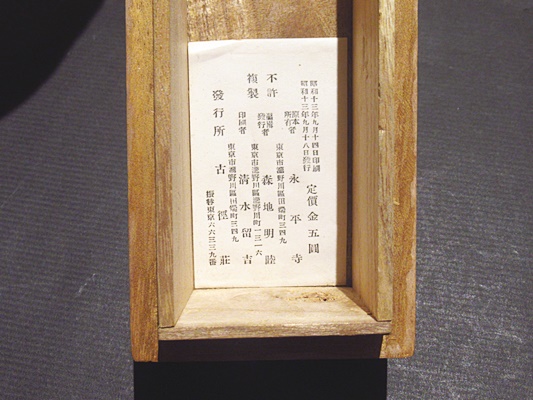 昭和十三年九月十四日印刷
昭和十三年九月十八日發行
定價金五圓
原本所有者
永平寺
不許複製
東京市瀧野川區田端町三四九
發行者
森地明陸
東京市瀧野川區瀧野川町一三一六
印刷者
清水留吉
東京市瀧野川區田端町三四九
發行所
古徑莊
振替東京六六三三九番